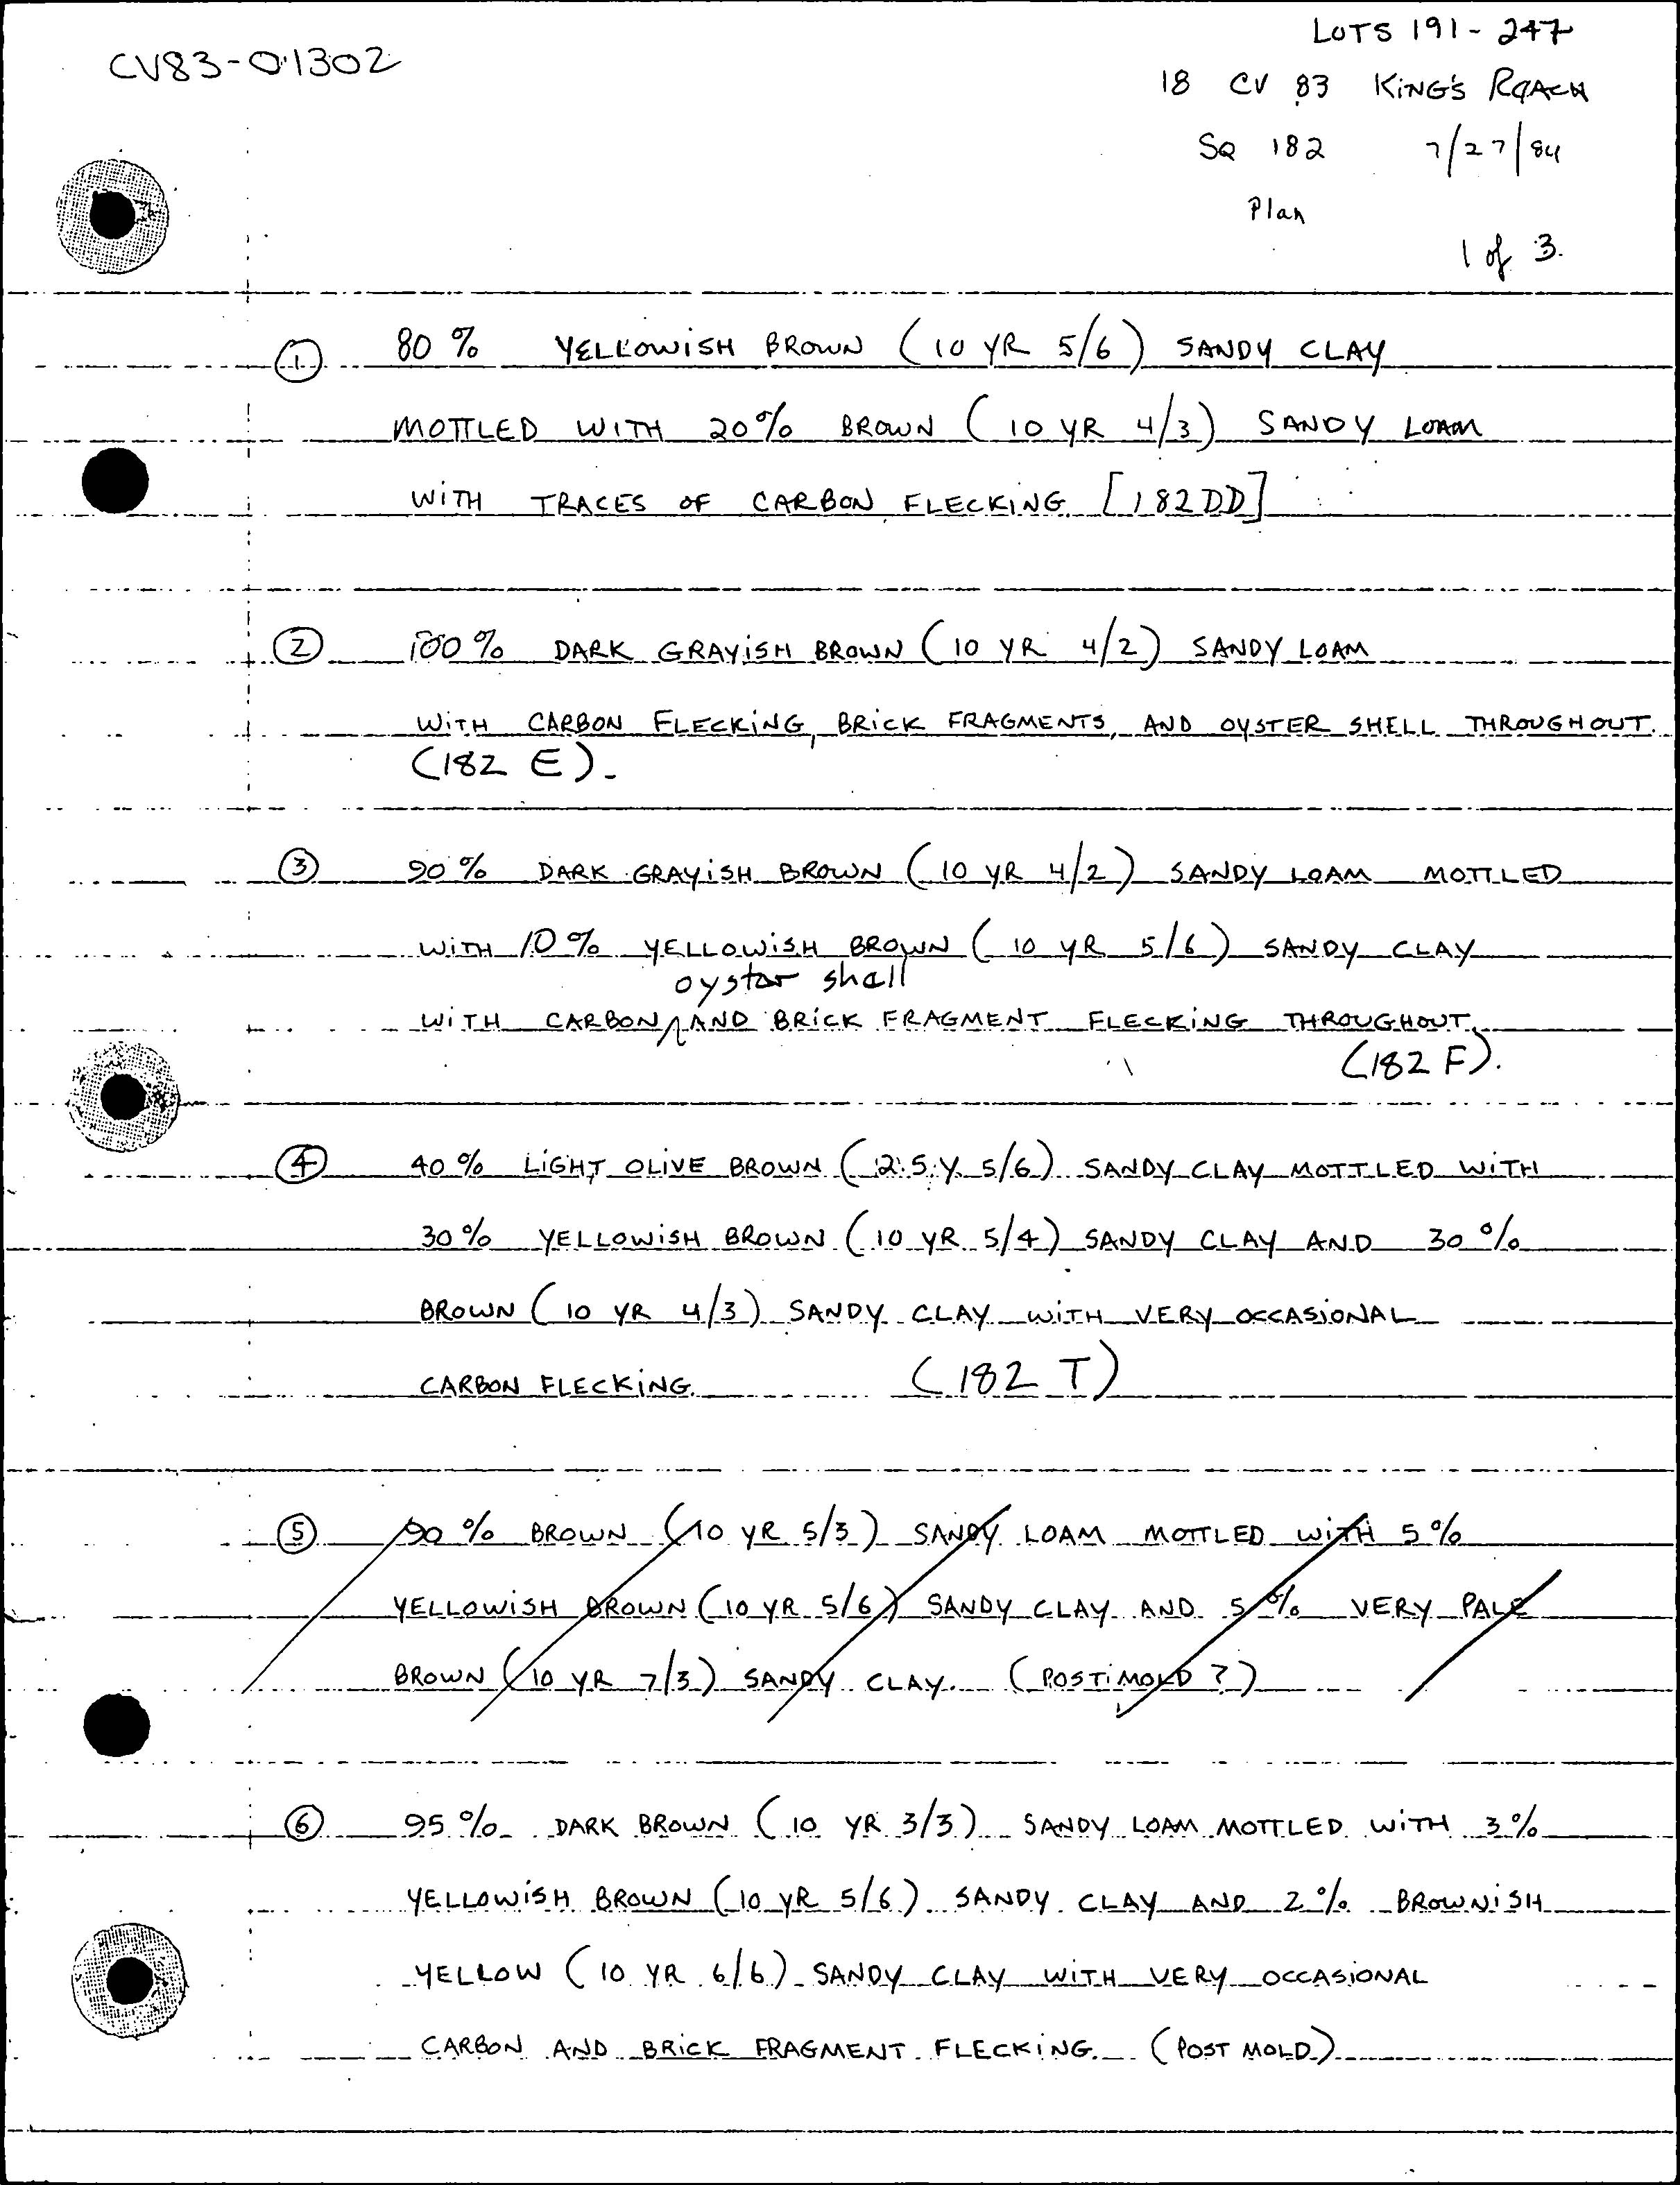 LOTS 191 - 247
CV83-01302
18 CV 83 KING'S REACH
SQ 182 7/27/84
Plan
1 of 3.
① 80% YELLOWISH BROWN (10 YR 5/6) SANDY CLAY
MOTTLED WITH 20% BROWN (10 YR 4/3) SANDY LOAM
WITH TRACES OF CARBON FLECKING [182DD]
② 100% DARK GRAYISH BROWN (10 YR 4/2) SANDY LOAM
WITH CARBON FLECKING, BRICK FRAGMENTS, AND OYSTER SHELL THROUGHOUT.
(182 E).
③ 90% DARK GRAYISH BROWN (10 YR 4/2) SANDY LOAM MOTTLED
WITH 10% YELLOWISH BROWN (10 YR 5/6) SANDY CLAY
oyster shell
WITH CARBON AND BRICK FRAGMENT FLECKING THROUGHOUT.
(182 F).
④ 40% LIGHT OLIVE BROWN (2.5 Y 5/6) SANDY CLAY MOTTLED WITH
30% YELLOWISH BROWN (10 YR 5/4) SANDY CLAY AND 30%
BROWN (10 YR 4/3) SANDY CLAY WITH VERY OCCASIONAL
CARBON FLECKING. (182 T)
⑤ 90% BROWN (10 YR 5/3) SANDY LOAM MOTTLED WITH 5%
YELLOWISH BROWN (10 YR 5/6) SANDY CLAY AND 5% VERY PALE
BROWN (10 YR 7/3) SANDY CLAY. (POST MOLD ?)
⑥ 95% DARK BROWN (10 YR 3/3) SANDY LOAM MOTTLED WITH 3%
YELLOWISH BROWN (10 YR 5/6) SANDY CLAY AND 2% BROWNISH
YELLOW (10 YR 6/6) SANDY CLAY WITH VERY OCCASIONAL
CARBON AND BRICK FRAGMENT FLECKING. (POST MOLD)